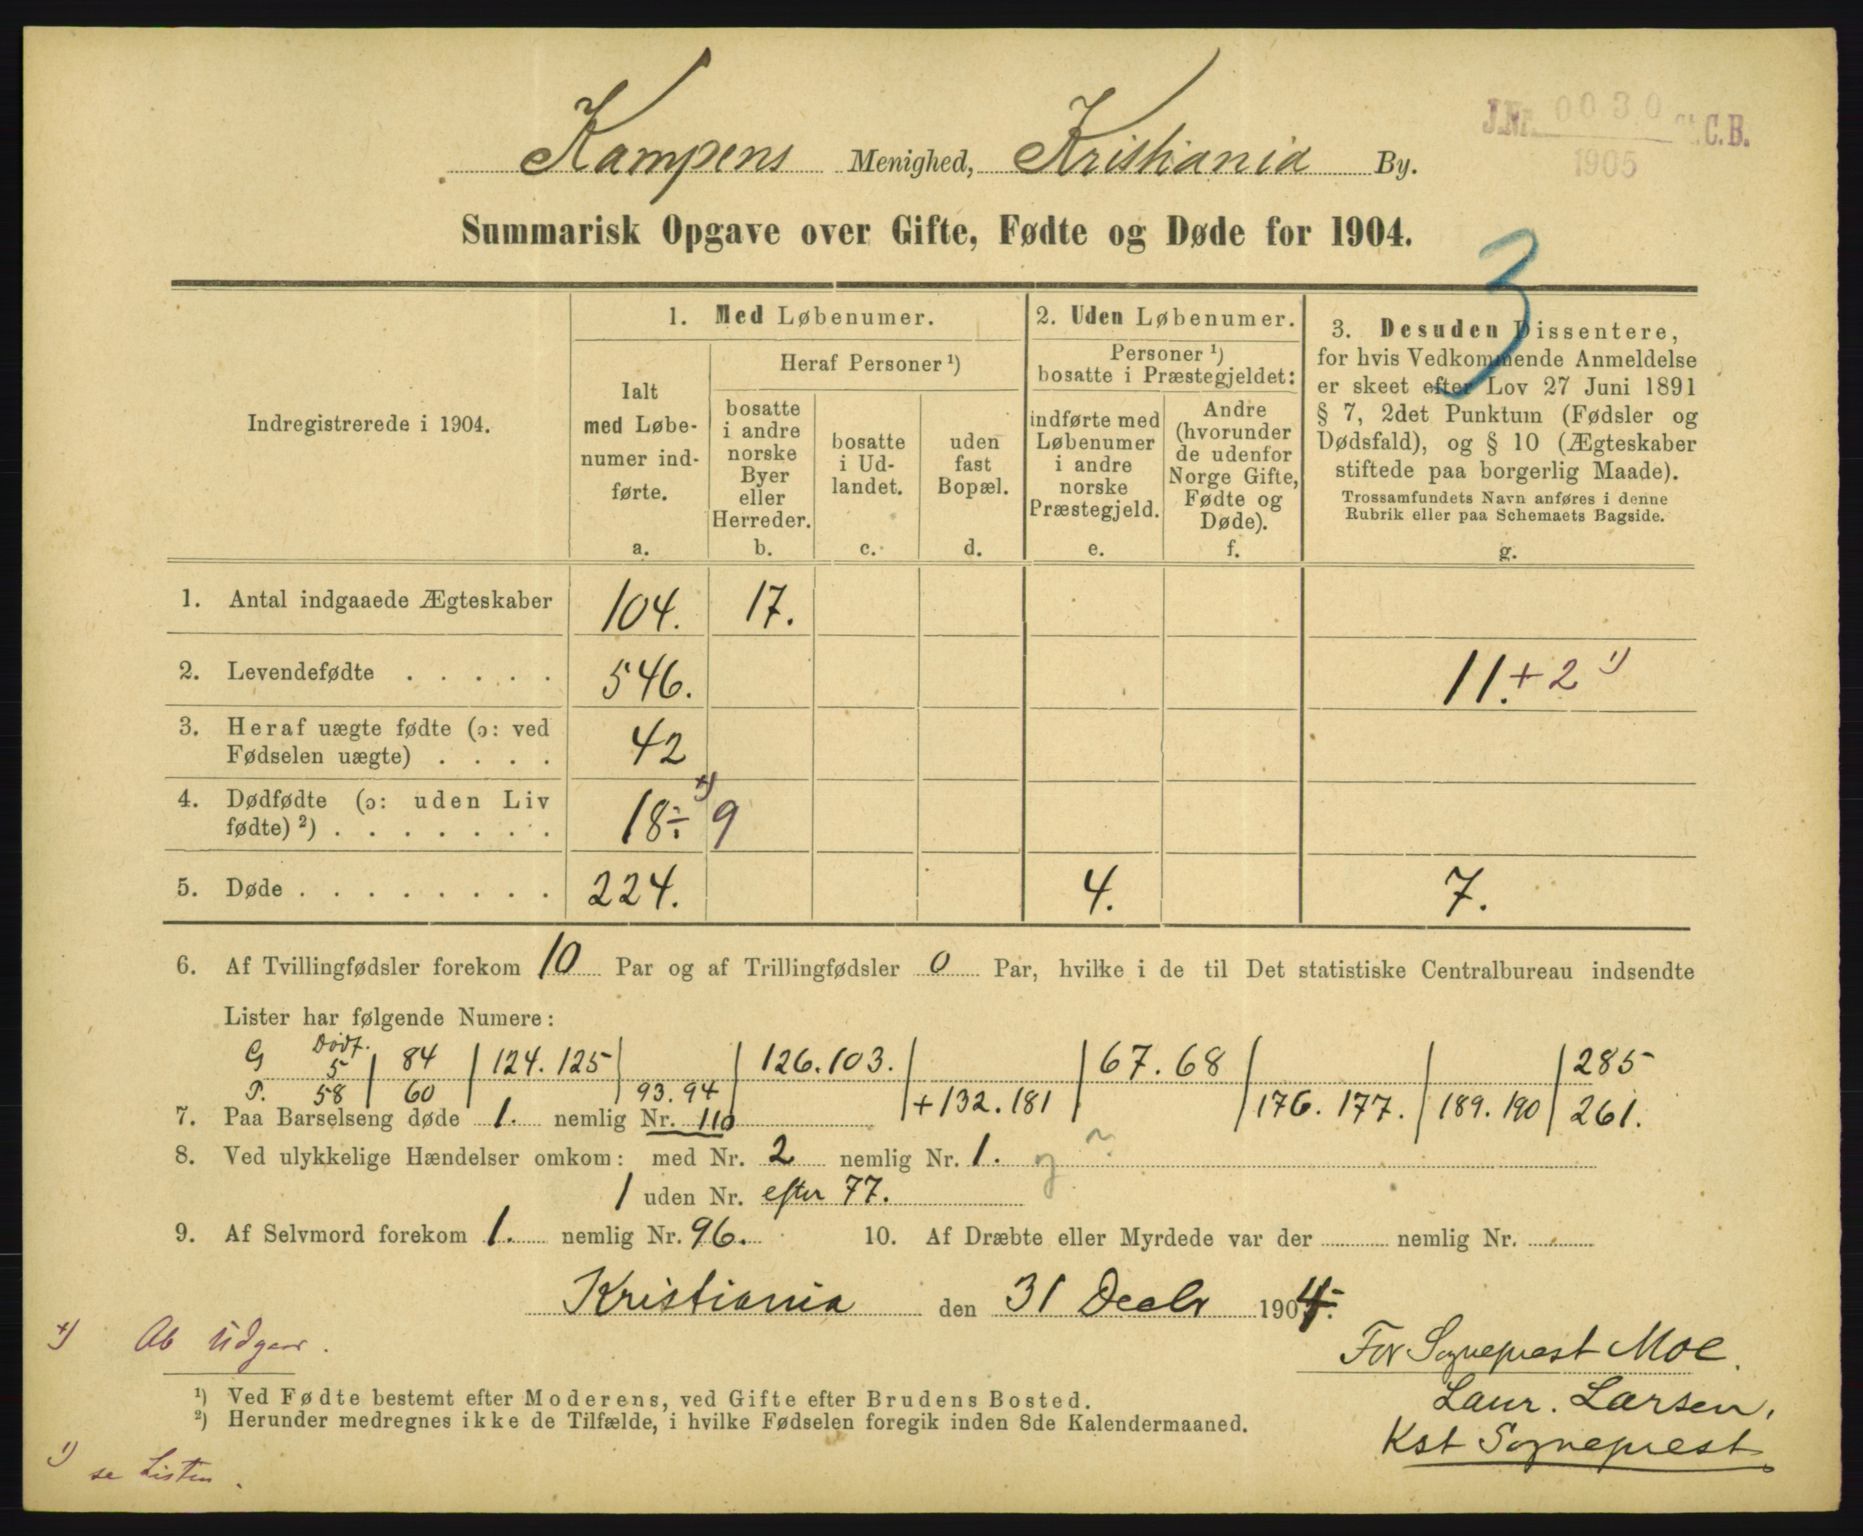 J.No. 0030 St.C.B.
1905
Kampens Menighed, Kristiania By.
Summarisk Opgave over Gifte, Fødte og Døde for 1904.
3
Indregistrerede i 1904.
1. Med Løbenumer.
Ialt
med Løbe-
numer ind-
førte.
a.
Heraf Personer ¹)
bosatte
i andre
norske
Byer
eller
Herreder.
b.
bosatte
i Ud-
landet.
c.
uden
fast
Bopæl.
d.
2. Uden Løbenumer.
Personer ¹)
bosatte i Præstegjeldet:
indførte med
Løbenumer
i andre
norske
Præstegjeld.
e.
Andre
(hvorunder
de udenfor
Norge Gifte,
Fødte og
Døde).
f.
3. Desuden Dissentere,
for hvis Vedkommende Anmeldelse
er skeet efter Lov 27 Juni 1891
§ 7, 2det Punktum (Fødsler og
Dødsfald), og § 10 (Ægteskaber
stiftede paa borgerlig Maade).
Trossamfundets Navn anføres i denne
Rubrik eller paa Schemaets Bagside.
g.
1. Antal indgaaede Ægteskaber 104. 17.
2. Levendefødte . . . . . 546. 11.+2 ¹)
3. Heraf uægte fødte (ɔ: ved
Fødselen uægte) . . . . 42
4. Dødfødte (ɔ: uden Liv
fødte) ²) . . . . . . . 18 ÷ ˣ) 9
5. Døde . . . . . . . . 224. 4. 7.
6. Af Tvillingfødsler forekom 10 Par og af Trillingfødsler 0 Par, hvilke i de til Det statistiske Centralbureau indsendte
Lister har følgende Numere:
Dødf.
G 5 | 84 | 124. 125 | | 126. 103. | | 67. 68 | | | 285
P. 58 | 60 | | 93. 94 | | +132. 181 | | 176. 177. | 189. 190 | 261.
7. Paa Barselseng døde 1. nemlig Nr. 110
8. Ved ulykkelige Hændelser omkom: med Nr. 2 nemlig Nr. 1. og ?
1 uden Nr. efter 77.
9. Af Selvmord forekom 1. nemlig Nr. 96. 10. Af Dræbte eller Myrdede var der nemlig Nr.
Kristiania den 31 Decbr 1904.
ˣ) Ab Udgaar.
For Sogneprest Moe.
Laur. Larsen,
Kst Sogneprest
¹) Ved Fødte bestemt efter Moderens, ved Gifte efter Brudens Bosted.
²) Herunder medregnes ikke de Tilfælde, i hvilke Fødselen foregik inden 8de Kalendermaaned.
¹) se Listen.